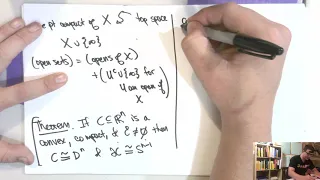 pt compact of X top space
X ∪ {∞}
(open sets) = (opens of X)
+ (Uᶜ ∪ {∞} for
U an open of
X
Theorem. If C ⊆ ℝⁿ is a
convex, compact, & C̊ ≠ ∅ then
C ≅ Dⁿ & ∂C ≅ Sⁿ⁻¹